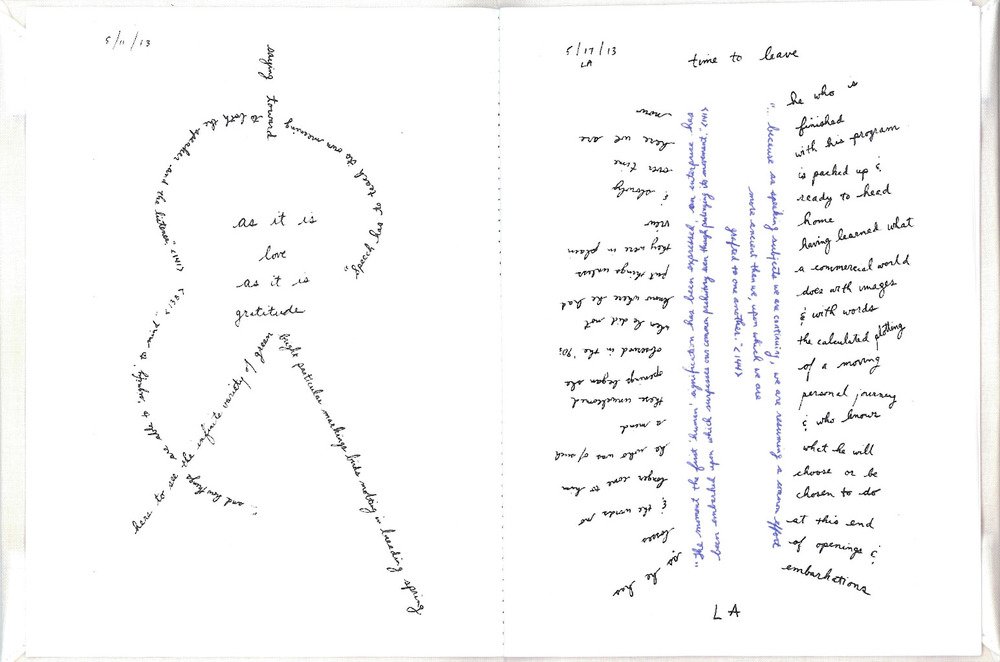 5/11/13
saying toward
"Speech has to teach its own meaning to both the speaker and the listener" <141>
as it is
love
as it is
gratitude
bright particular markings birds nesting in breeding spring
here to see the infinite variety of green
5/17/13
LA
time to leave
he who is
finished
with his program
is packed up &
ready to head
home
having learned what
a commercial world
does with images
& with words
the calculated plotting
of a moving
personal journey
& who knows
what he will
choose or be
chosen to do
at this end
of openings &
embarkations
LA
so he has
losses
& the words no
longer come to him
he who was of such
a mind
these
openings began she
observed in the '90s
when he did not
know where he had
put things unless
they were in plain
view
& slowly
over time
here we are
now
"... because as speaking subjects we are continuing, we are resuming a common effort
more ancient than we, upon which we are
grafted to one another." <144>
"the moment the first 'human' signification has been expressed, an enterprise has
been embarked upon which surpasses our common prehistory even though prolonging its movement." <141>